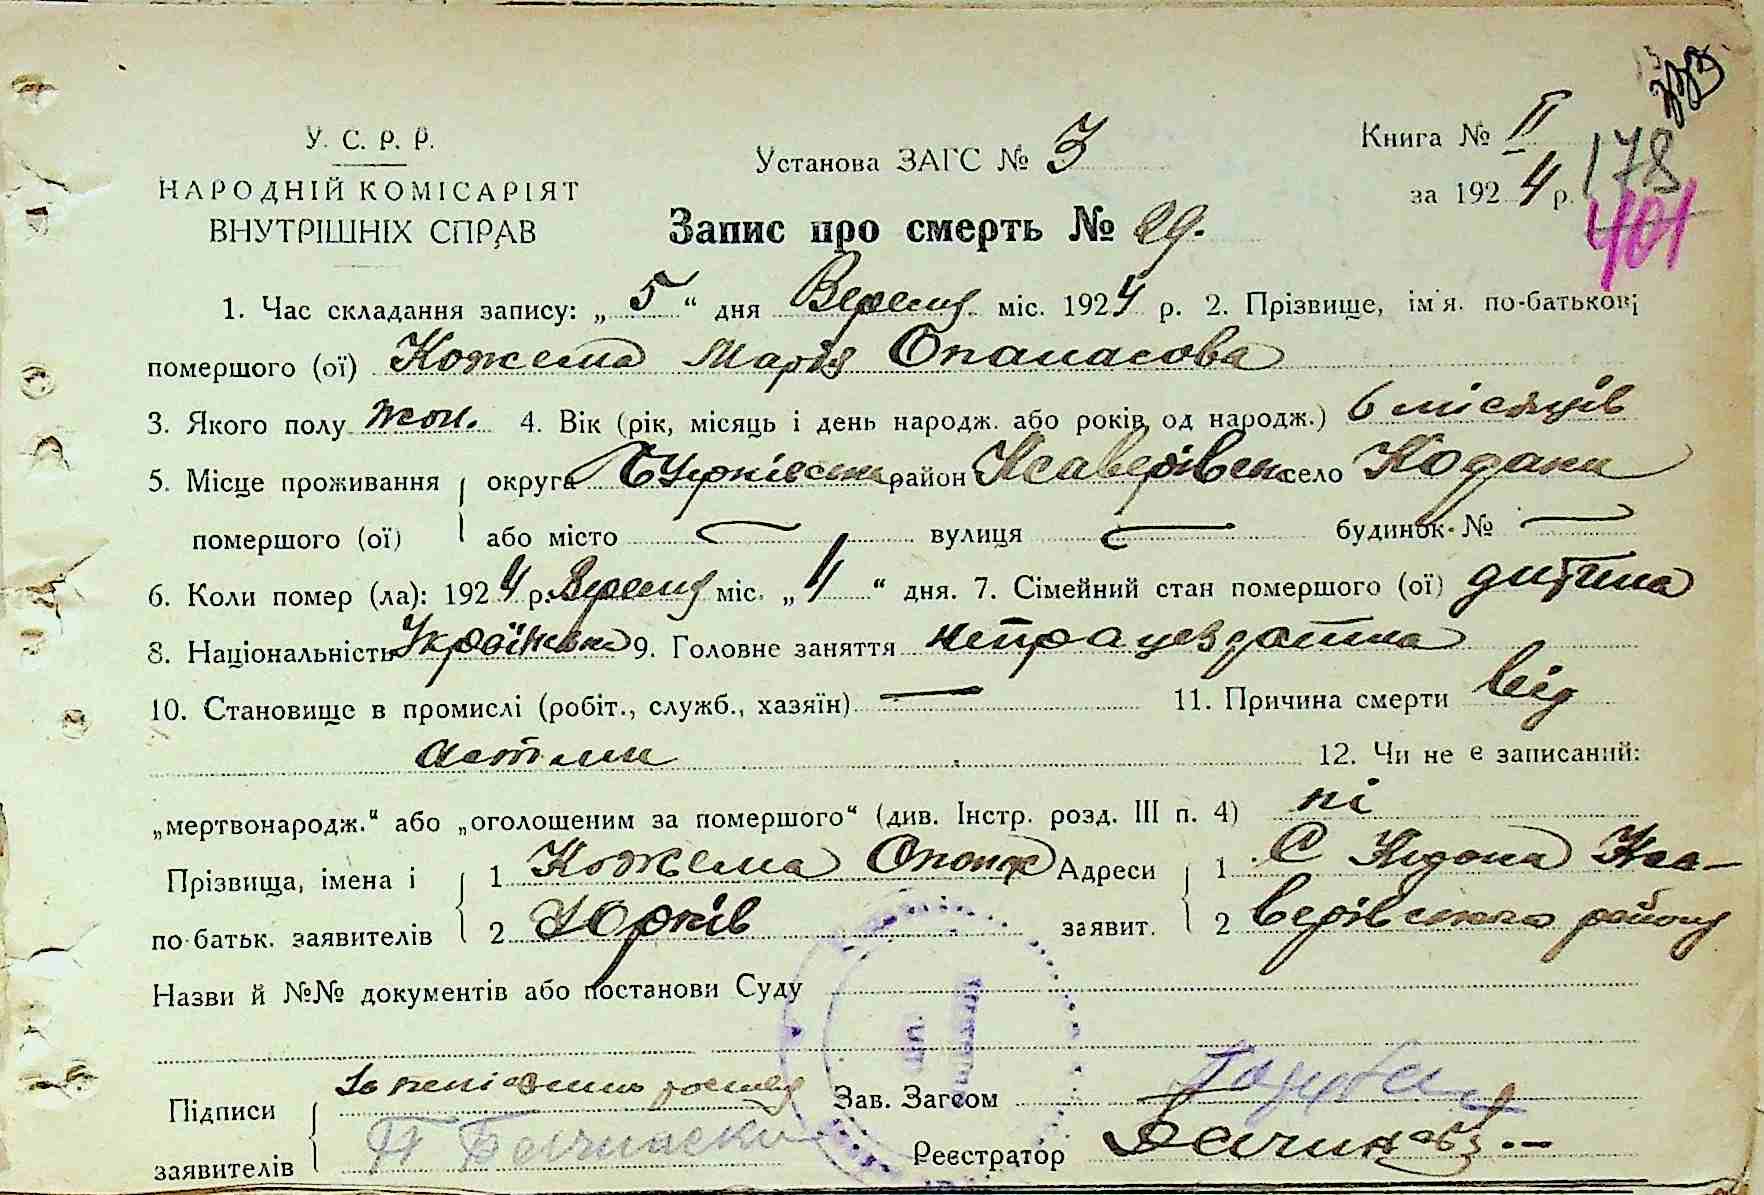 У. С. Р. Р.
НАРОДНІЙ КОМІСАРІЯТ
ВНУТРІШНІХ СПРАВ
Установа ЗАГС № 3
Книга № ІІ
за 1924 р.
178
401
Запис про смерть № 29.
1. Час складання запису: „5“ дня Вересня міс. 1924 р. 2. Прізвище, ім'я. по-батькові
помершого (ої) Кожема Марія Опанасова
3. Якого полу жон. 4. Вік (рік, місяць і день народж. або років од народж.) 6 місяців
5. Місце проживання округа район Ксаверівськ село Кодаки
помершого (ої) або місто — вулиця — будинок № —
6. Коли помер (ла): 1924 р. Вересня міс. „4“ дня. 7. Сімейний стан помершого (ої) дитина
8. Національність Українка 9. Головне заняття непрацездатна
10. Становище в промислі (робіт., служб., хазяїн) — 11. Причина смерти від
астми 12. Чи не є записаний:
„мертвонародж.“ або „оголошеним за помершого“ (див. Інстр. розд. III п. 4) ні
Прізвища, імена і 1 Кожема Опанас Адреси 1 С Кодаки Кса-
по-батьк. заявителів 2 Юрків заявит. 2 верівського району
Назви й №№ документів або постанови Суду
Підписи Зав. Загсом
заявителів Реєстратор